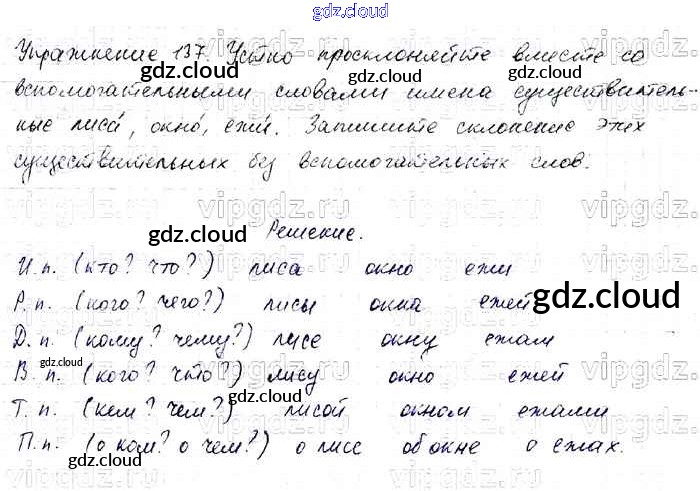 gdz.cloud
Упражнение 137. Устно просклоняйте вместе со
вспомогательными словами имена существитель-
ные лиса́, окно́, ежи́. Запишите склонение этих
существительных без вспомогательных слов.
Решение.
И.п. (кто? что?) лиса окно ежи
Р.п. (кого? чего?) лисы окна ежей
Д.п. (кому? чему?) лисе окну ежам
В.п. (кого? что?) лису окно ежей
Т.п. (кем? чем?) лисой окном ежами
П.п. (о ком? о чем?) о лисе об окне о ежах.
gdz.cloud
gdz.cloud
gdz.cloud
gdz.cloud
gdz.cloud
gdz.cloud
gdz.cloud
gdz.cloud
gdz.cloud
vipgdz.ru